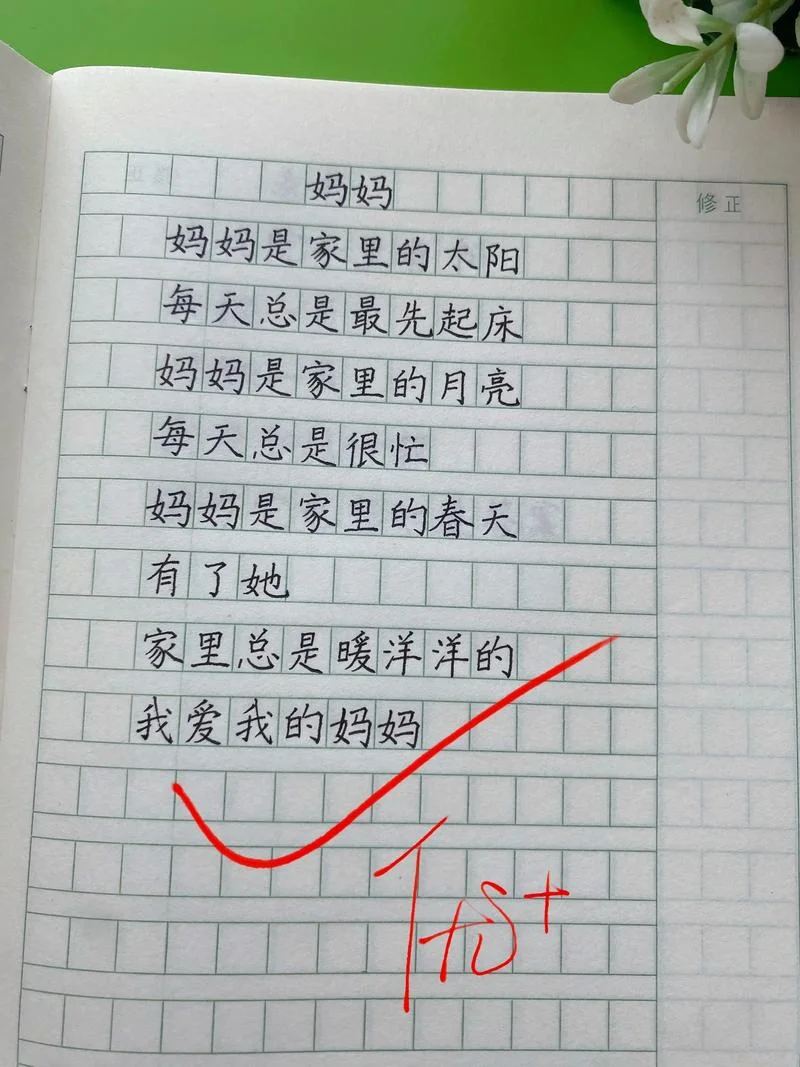 妈妈
修正
妈妈是家里的太阳
每天总是最先起床
妈妈是家里的月亮
每天总是很忙
妈妈是家里的春天
有了她
家里总是暖洋洋的
我爱我的妈妈
优+